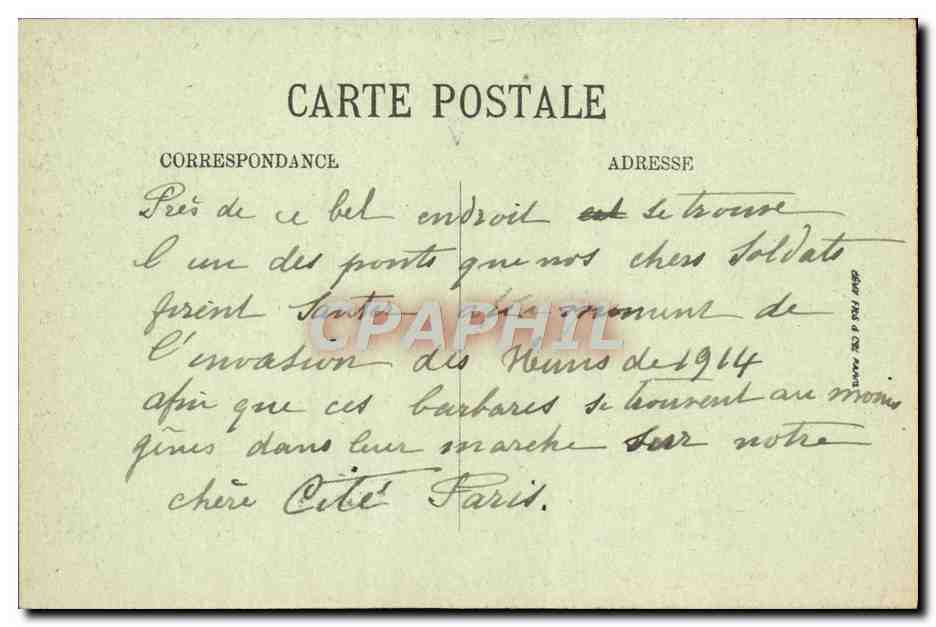 CARTE POSTALE
CORRESPONDANCE
ADRESSE
Près de ce bel endroit est se trouve
l'un des ponts que nos chers soldats
firent sauter au moment de
l'invasion des Huns de 1914
afin que ces barbares se trouvent au moins
gênés dans leur marche sur notre
chère Cité Paris.
CPAPHIL